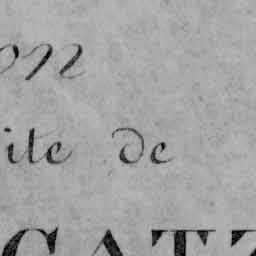 on
ite de
CATZ